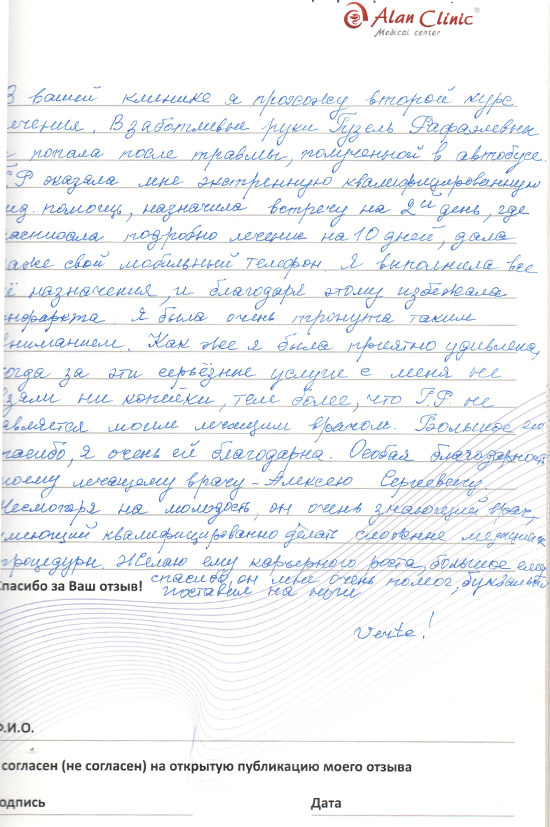 Alan Clinic®
Medical center
В вашей клинике я прохожу второй курс
лечения. В заботливые руки Гузель Рафаэлевны
я попала после травмы, полученной в автобусе.
Г.Р. оказала мне экстренную квалифицированную
мед. помощь, назначила встречу на 2й день, где
расписала подробно лечение на 10 дней, дала
даже свой мобильный телефон. Я выполнила все
её назначения, и благодаря этому избежала
инфаркта. Я была очень тронута таким
вниманием. Как же я была приятно удивлена,
когда за эти серьёзные услуги с меня не
взяли ни копейки, тем более, что Г.Р. не
является моим лечащим врачом. Большое ей
спасибо, я очень ей благодарна. Особая благодарность
моему лечащему врачу - Алексею Сергеевичу.
Несмотря на молодость, он очень знающий врач,
умеющий квалифицированно делать сложные медицинские
процедуры. Желаю ему карьерного роста, большое ему
спасибо, он мне очень помог, буквально
Спасибо за Ваш отзыв!
поставил на ноги
Verte!
Ф.И.О.
согласен (не согласен) на открытую публикацию моего отзыва
Подпись
Дата